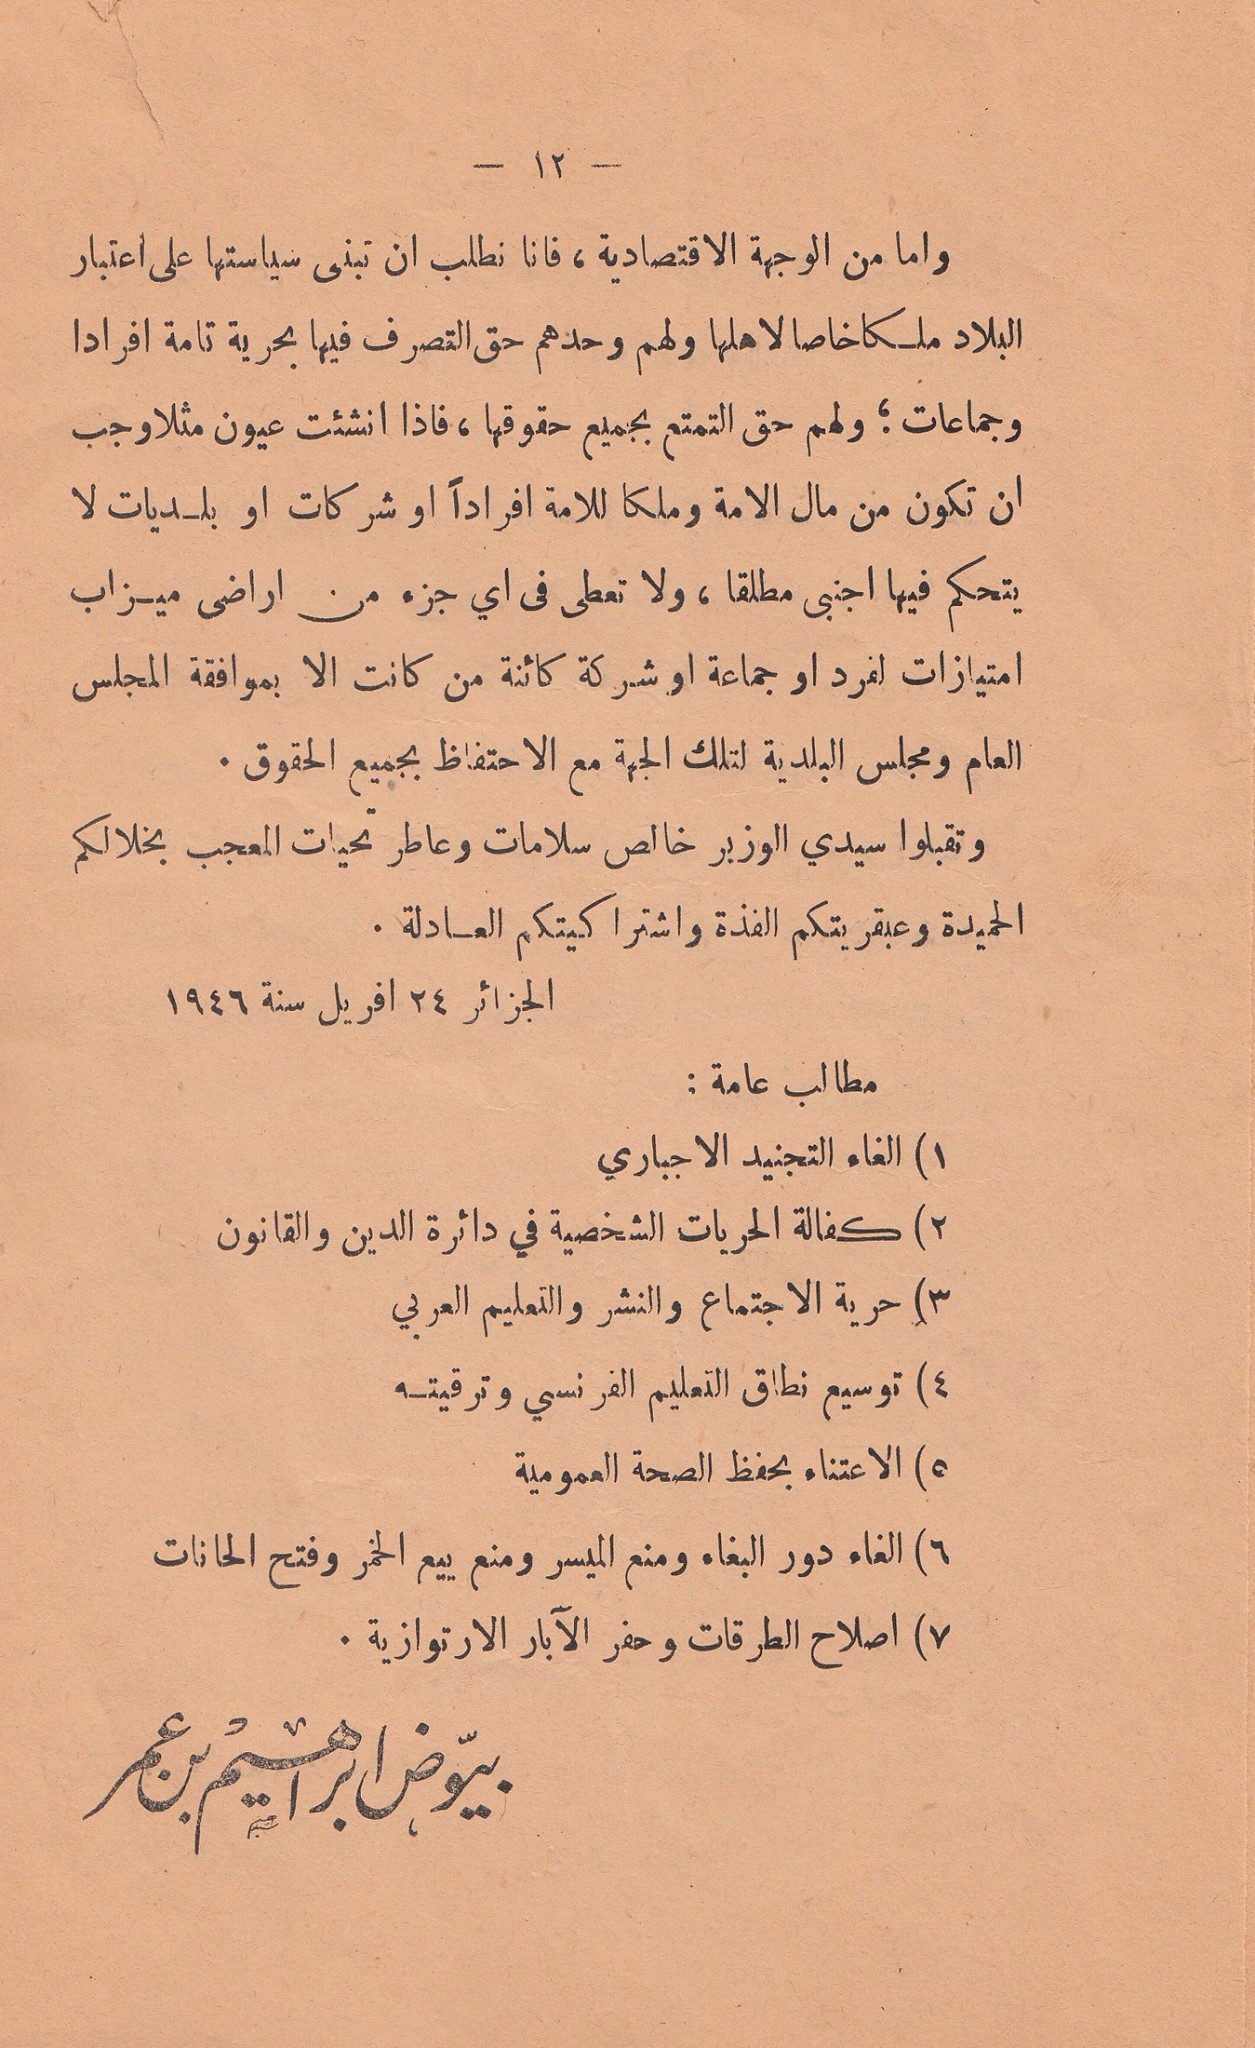 — ١٢ —
واما من الوجهة الاقتصادية ، فانا نطلب ان تبنى سياستها على اعتبار
البلاد ملكا خاصا لاهلها ولهم وحدهم حق التصرف فيها بحرية تامة افرادا
وجماعات ؛ ولهم حق التمتع بجميع حقوقها ، فاذا انشئت عيون مثلا وجب
ان تكون من مال الامة وملكا للامة افراداً او شركات او بلديات لا
يتحكم فيها اجنبى مطلقا ، ولا تعطى فى اي جزء من اراضى ميزاب
امتيازات لفرد او جماعة او شركة كائنة من كانت الا بموافقة المجلس
العام ومجلس البلدية لتلك الجهة مع الاحتفاظ بجميع الحقوق .
وتقبلوا سيدي الوزير خالص سلامات وعاطر تحيات المعجب بخلالكم
الحميدة وعبقريتكم الفذة واشتراكيتكم العادلة .
الجزائر ٢٤ افريل سنة ١٩٤٦
مطالب عامة :
١) الغاء التجنيد الاجباري
٢) كفالة الحريات الشخصية في دائرة الدين والقانون
٣) حرية الاجتماع والنشر والتعليم العربي
٤) توسيع نطاق التعليم الفرنسي وترقيته
٥) الاعتناء بحفظ الصحة العمومية
٦) الغاء دور البغاء ومنع الميسر ومنع بيع الخمر وفتح الحانات
٧) اصلاح الطرقات وحفر الآبار الارتوازية .
بيّوض ابراهيم بن عمر